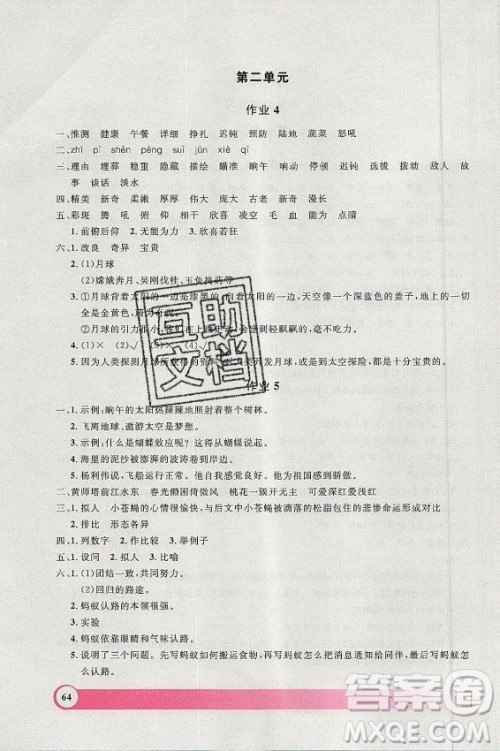 第二单元
作业 4
一、推测 健康 午餐 详细 挣扎 迟钝 预防 陆地 蔬菜 怒吼
二、zhī pì shèn pēng suí jūn xiè qī
三、理由 埋葬 稳重 隐藏 描绘 瞄准 晌午 响动 停顿 迟钝 选拔 拨动 敌人 故
事 谈话 淡水
四、精美 新奇 柔嫩 厚厚 庞大 奇异 新奇 漫长
五、彩斑 腾 吼 俯仰 相作 欣喜 凌空 毛 血 能为 点睛
1. 前俯后仰 2. 无能为力 3. 欣喜若狂
六、1. 改良 奇异 宝贵
2. (1)月球
(2)嫦娥奔月、吴刚伐桂、玉兔捣药等
3. ①月球背着太阳的一边是漆黑的
4. (1)× (2)×
5. 因为人类探测月球
作业 5
一、1. 示例：晌午的太阳热辣辣地照射着整个树林。
2. 飞离地球、遨游太空是梦想。
3. 示例：什么是蝴蝶效应呢？让我们从蝴蝶说起。
4. 海里的泥沙被澎湃的波涛卷上岸边。
5. 杨利伟说，飞船运行正常。他相信自己感到骄傲。
二、黄师塔前江水东 春光懒困倚微风 桃花一簇开无主 可爱深红爱浅红
三、1. 拟人 小苍蝇的心情很愉快，与后文中小苍蝇被滴落的松脂包住的悲惨命运形成对比
2. 排比 形态各异
四、1. 列数字 2. 作比较 3. 举例子
五、1. 设问 2. 拟人 3. 比喻
六、1. (1)团结一致，共同努力。
(2)回家的路途。
2. 蚂蚁认路的本领很强。
3. 实验
4. 蚂蚁依靠眼睛和气味认路。
5. 说明了三个问题。先写蚂蚁如何搬运食物，再写蚂蚁如何通知同伴，最后写蚂蚁怎
么认路。
64
互助
文档
答案圈
MXQE.COM